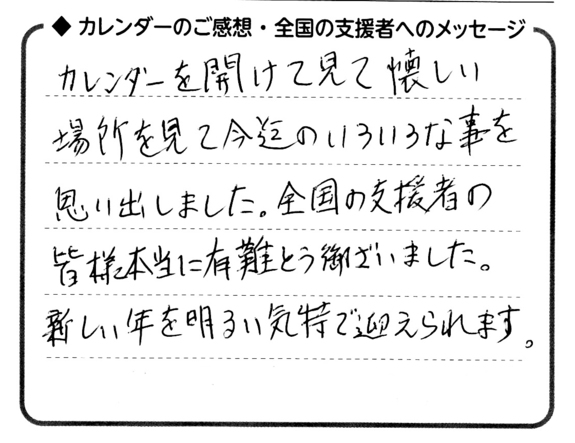 ◆ カレンダーのご感想・全国の支援者へのメッセージ
カレンダーを開けて見て懐しい
場所を見て今迄のいろいろな事を
思い出しました。全国の支援者の
皆様本当に有難とう御ざいました。
新しい年を明るい気持で迎えられます。